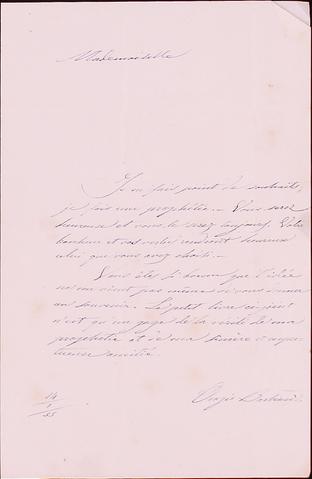 Mademoiselle
Je ne fais point de souhaits,
je fais une prophétie. – Vous serez
heureuse et vous le serez toujours. Votre
bonheur et vos vertus rendront heureux
celui que vous avez choisi. –
Vous êtes si bonne que l'idée
ne me vient pas même de vous
au souvenir. Le petit livre ci-joint
n'est qu'un gage de la vérité de ma
prophétie et de ma sincère et respec-
tueuse amitié.
14
1
55